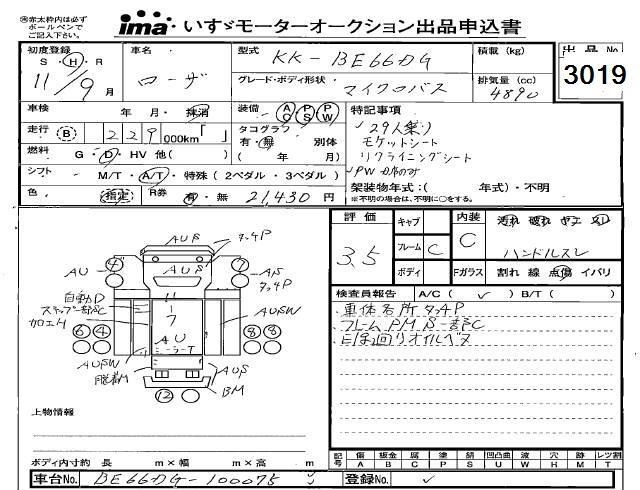 ㊟赤太枠内は必ず
ボールペンで
ご記入下さい。
ima いすゞモーターオークション出品申込書
初度登録 車名 型式 KK-BE66DG 積載(kg) 出品No
S・H・R
11/9月 ローザ グレード・ボディ形状 マイクロバス 排気量(cc) 4890 3019
車検 年 月・抹消 装備 AC PS PW 特記事項
走行 B 229 000km「 」 タコグラフ 有・無 別体 29人乗り
モケットシート
燃料 G・D・HV 他( ) ( 年 月) リクライニングシート
シフト M/T・A/T・特殊(2ペダル・3ペダル) PW
架装物年式:( 年式)・不明
色 (指定) R券 有・無 21,430円 ※不明の場合は、不明に○をする。
評価 3.5 キャブ 内装 C 汚れ 破れ ヤニ スリ
フレーム C ハンドルスレ
ボディ Fガラス 割れ 線 点傷 イバリ
検査員報告 A/C( ✓ ) B/T( )
車体各所タッチP
フレームPM S一部C
下廻りオイルベタ
AUS タッチP
4 7
AU AS
タッチP
自動D 11-7
ステップ一部C
加工M AUSW
6 4 AU 8 8
ミラーT
AUSW AUS
脱着M BM
12
上物情報
ボディ内寸約 長 m×幅 m×高 m
記号 傷 板金 腐 塗 錆 凹凸曲 波 穴 跡 レツ割
A B C P S U W H M T
車台No. BE66DG-100075 登録No.